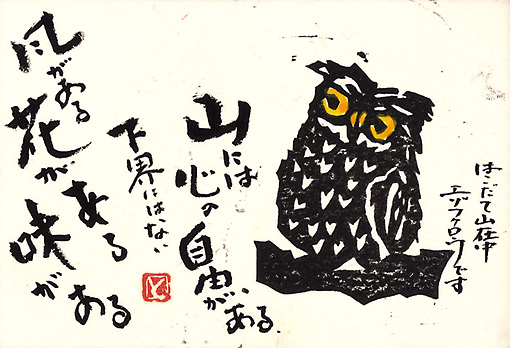 はこだて山在中
エゾフクロウです
山には
心の自由が、ある
下界にはない
風がある
花がある
味がある